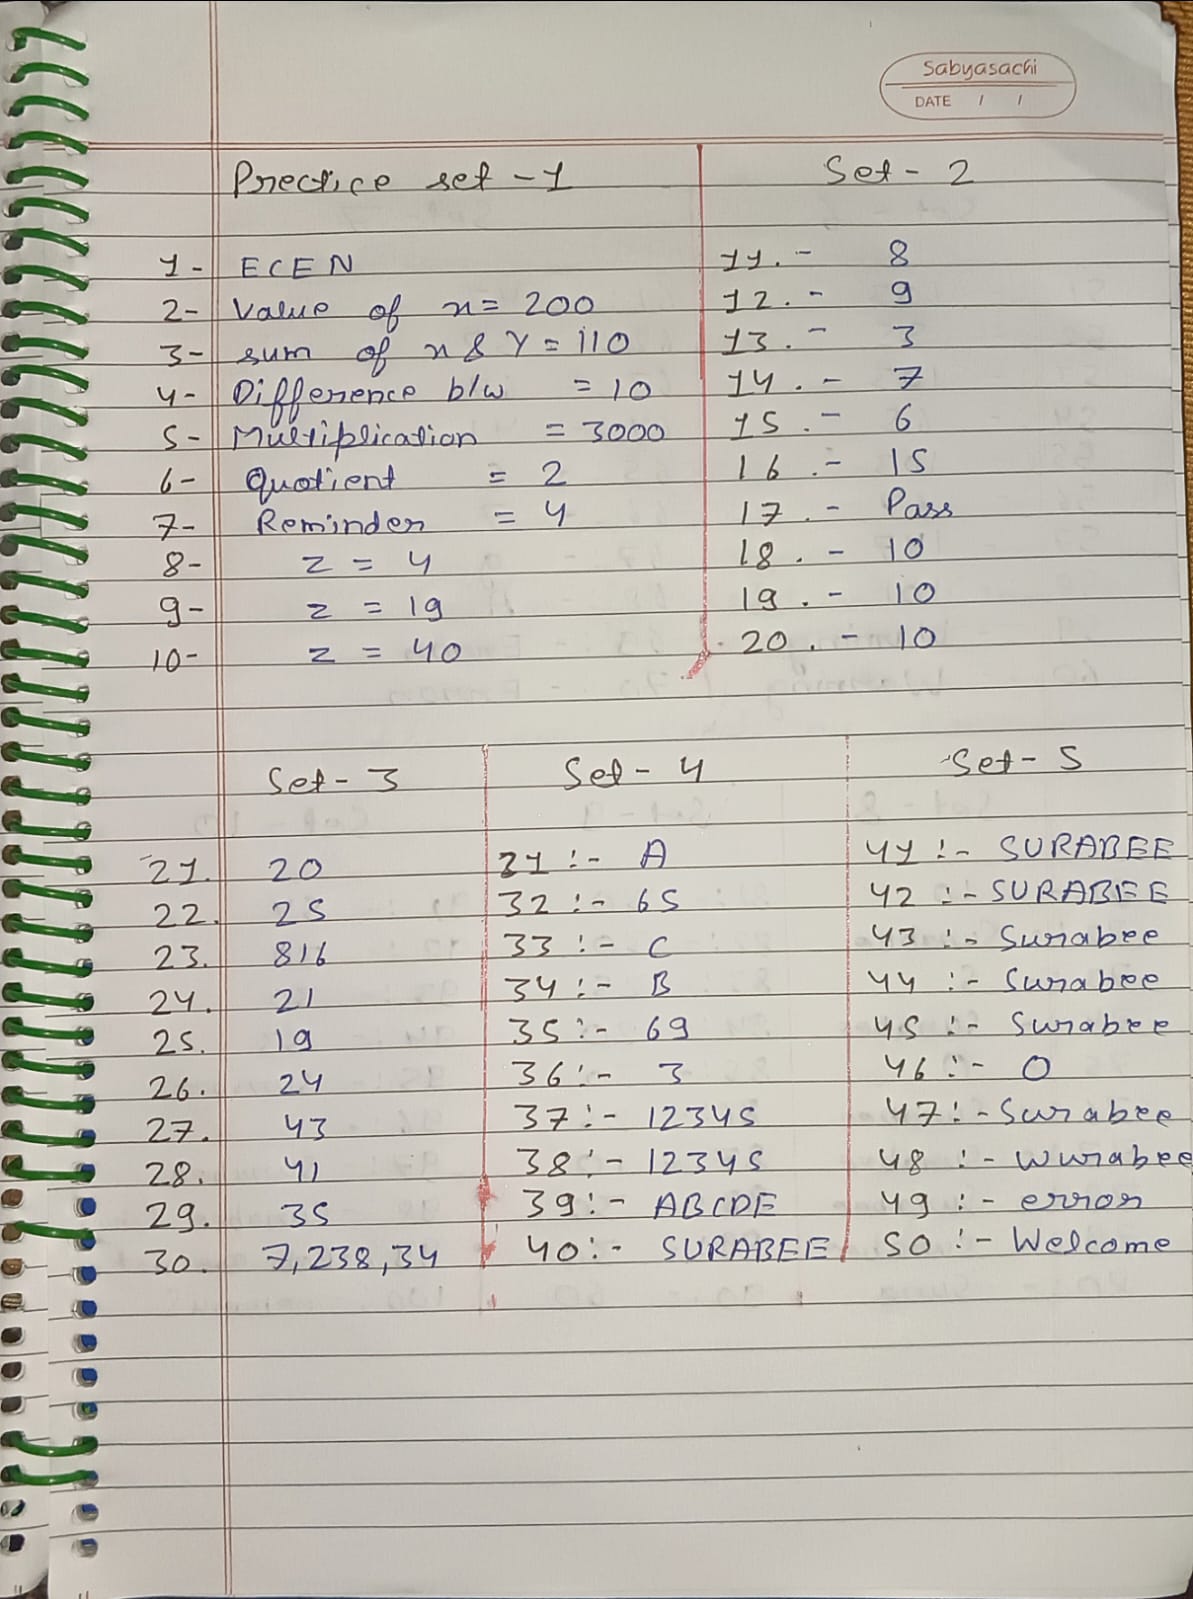 Sabyasachi
DATE / /
Prectice set - 1
1- ECEN
2- Value of x = 200
3- sum of x & Y = 110
4- Difference b/w = 10
5- Multiplication = 3000
6- Quotient = 2
7- Reminder = 4
8- z = 4
9- z = 19
10- z = 40
Set - 2
11. - 8
12. - 9
13. - 3
14. - 7
15. - 6
16. - 15
17. - Pass
18. - 10
19. - 10
20. - 10
Set - 3
21. 20
22. 25
23. 816
24. 21
25. 19
26. 24
27. 43
28. 41
29. 35
30. 7,238,34
Set - 4
31 :- A
32 :- 65
33 :- C
34 :- B
35 :- 69
36 :- 3
37 :- 12345
38 :- 12345
39 :- ABCDE
40 :- SURABEE
Set - 5
41 :- SURABEE
42 :- SURABEE
43 :- Surabee
44 :- Surabee
45 :- Surabee
46 :- 0
47 :- Surabee
48 :- Wurabee
49 :- error
50 :- Welcome